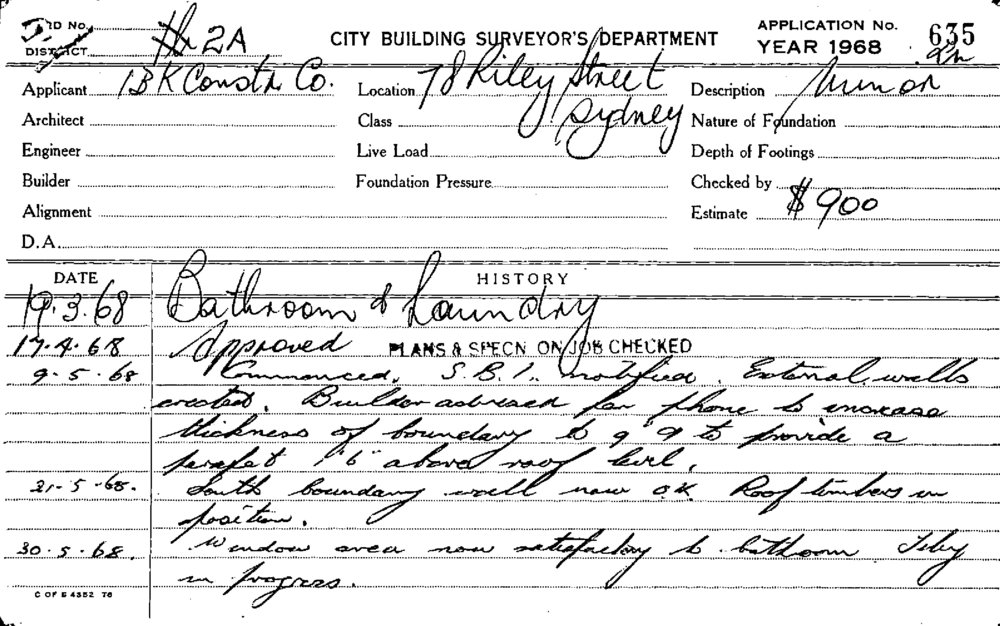 RD No.
DISTRICT
2A
CITY BUILDING SURVEYOR'S DEPARTMENT
APPLICATION No. 635
YEAR 1968
Applicant BK Constr Co. Location 78 Riley Street Description Minor
Architect Class Sydney Nature of Foundation
Engineer Live Load Depth of Footings
Builder Foundation Pressure Checked by
Alignment Estimate $900
D.A.
DATE HISTORY
19.3.68 Bathroom & Laundry
17.4.68 Approved PLANS & SPECN ON JOB CHECKED
9.5.68 Commenced. S.B.I. notified. External walls
erected. Builder advised per phone to increase
thickness of boundary to 9" & to provide a
parapet 1'6" above roof level.
21-5-68. South boundary wall now O.K. Roof timbers in
position.
30.5.68. Window area now satisfactory to bathroom
in progress.
C OF S 4352 76